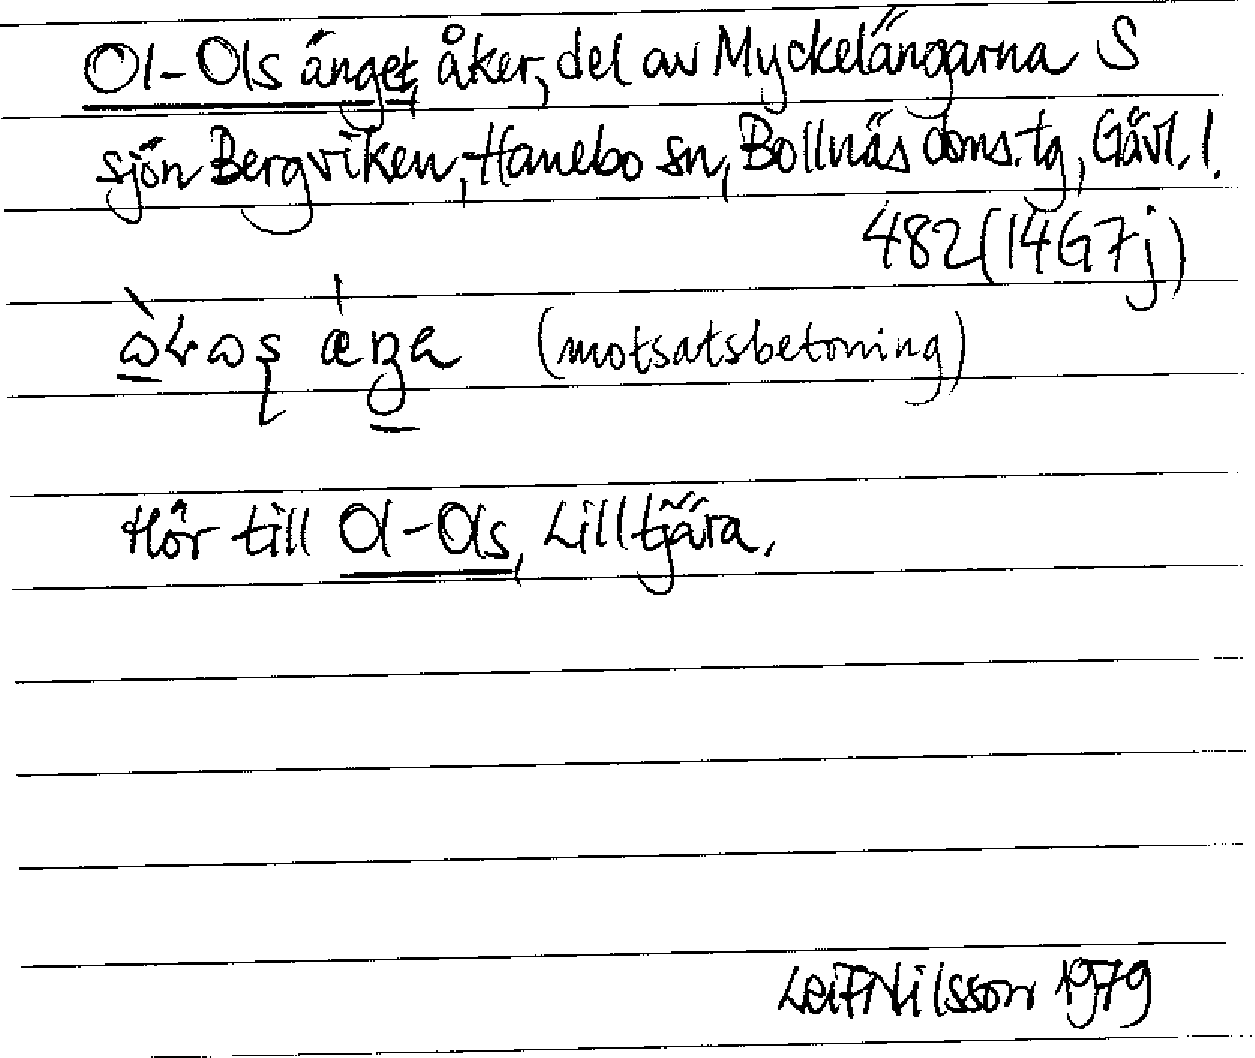 Ol-Ols änget, åker, del av Myckelängarna S
sjön Bergviken, Hanebo sn, Bollnäs doms. tg, Gävl. l.
482 (14G7j)
(motsatsbetoning)
Hör till Ol-Ols, Lilltjära,
Leif Nilsson 1979